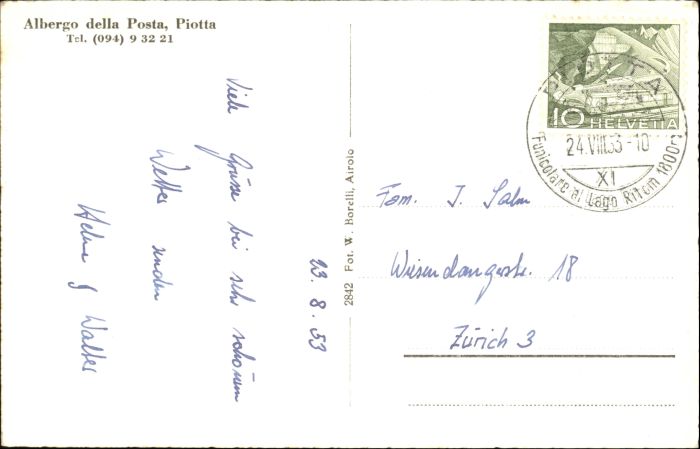 Albergo della Posta, Piotta
Tel. (094) 9 32 21
Viele Grüsse bei sehr schönem
Wetter senden
Walter
23. 8. 53
2842 Fot. W. Borelli, Airolo
10 HELVETIA
PIOTTA
24.VIII.53-10
XI
Funicolare al Lago Ritom 1800m
Fam. J. Salm
Wiesendangerstr. 18
Zürich 3